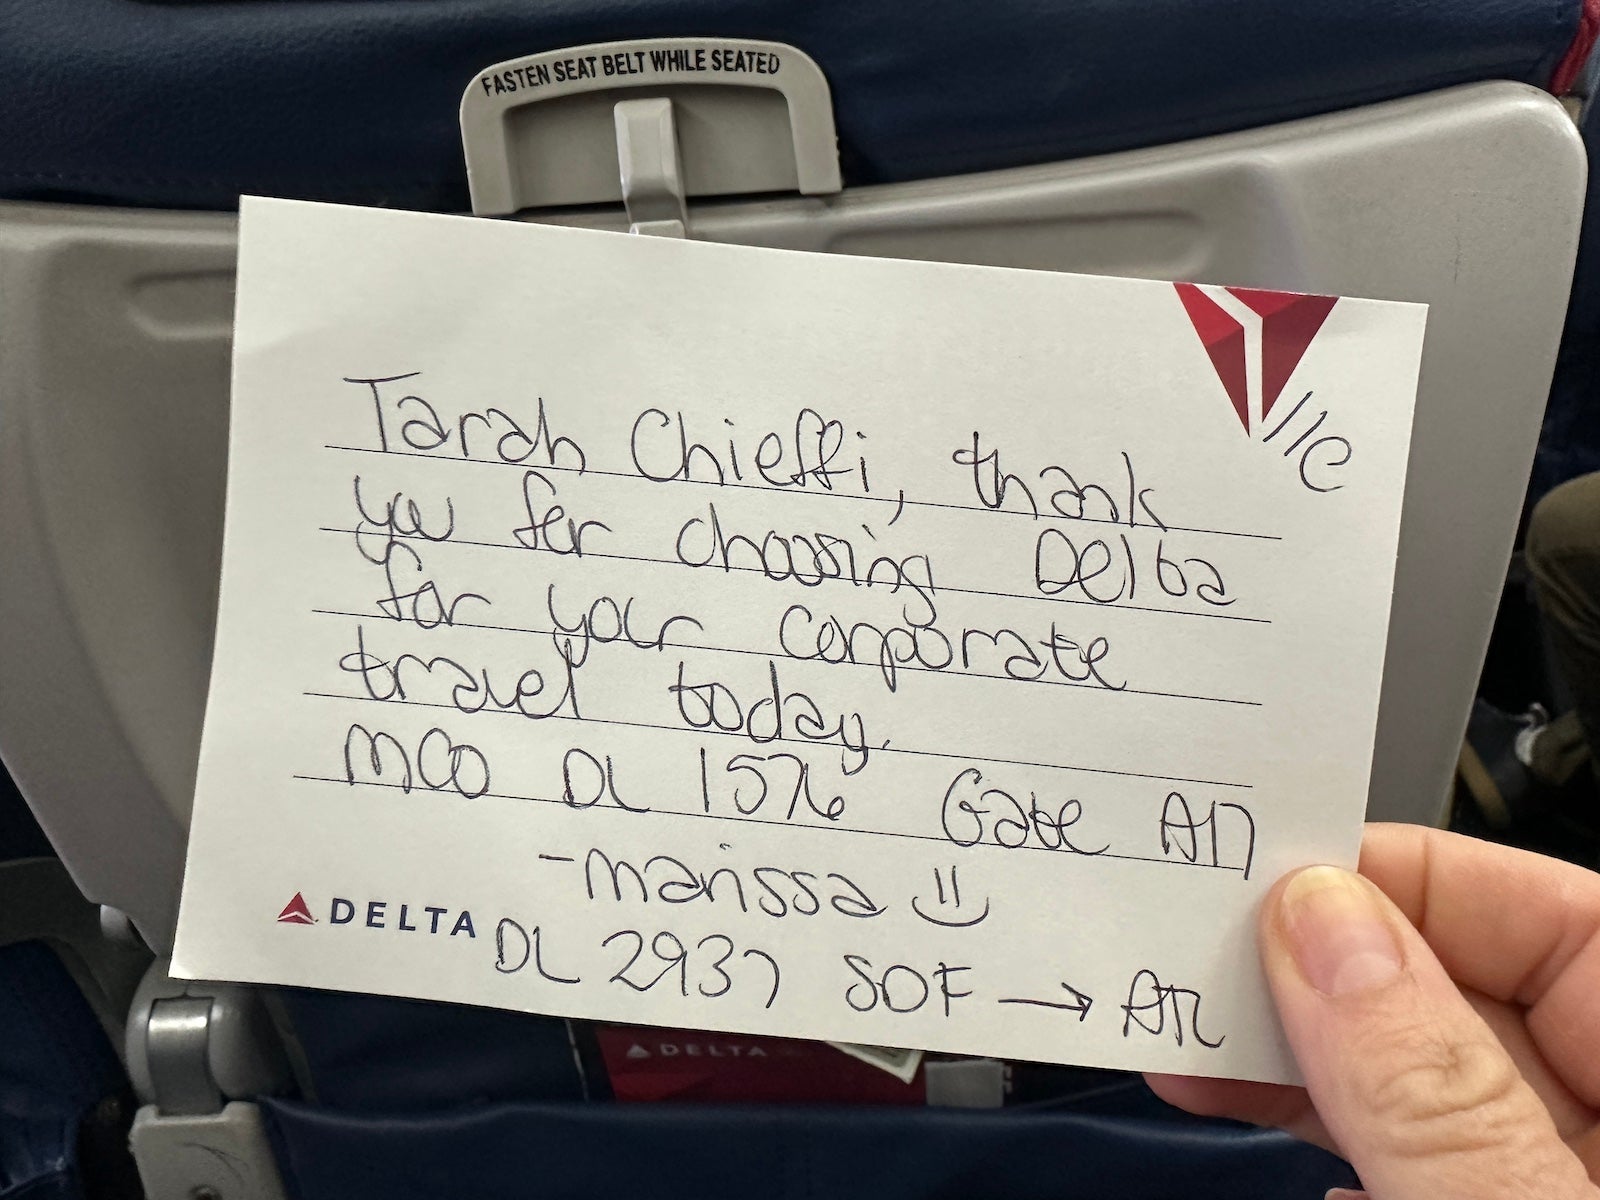 FASTEN SEAT BELT WHILE SEATED
11C
Tarah Chieffi, thank
you for choosing Delta
for your corporate
travel today.
MCO DL 1576 Gate A17
-marissa
DELTA
DL 2937 SDF → ATL
DELTA